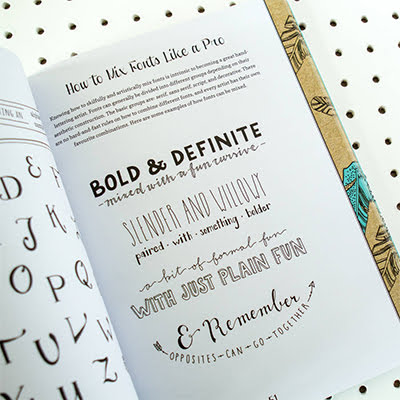 How to Mix Fonts Like a Pro
Knowing how to skilfully and artistically mix fonts is intrinsic to becoming a great hand-
lettering artist. Fonts can generally be divided into different groups depending on their
aesthetic construction. The basic groups are: serif, sans serif, script, and decorative. There
are no hard-and-fast rules on how to combine different fonts, and every artist has their own
favourite combinations. Here are some examples of how fonts can be mixed.
BOLD & DEFINITE
-mixed with a fun cursive-
SLENDER AND WILLOWY
paired · with · something · bolder
a-bit-of-formal-fun
WITH JUST PLAIN FUN
& Remember
OPPOSITES-CAN-GO-TOGETHER
51
D E
J K
P Q
U V W
X Y Z